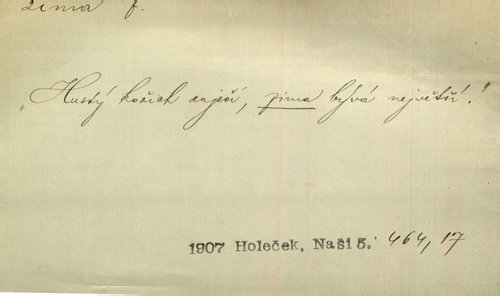 zima f.
„Hustý kožich zaječí, zima bývá největší.“
1907 Holeček, Naši 5. 464,17